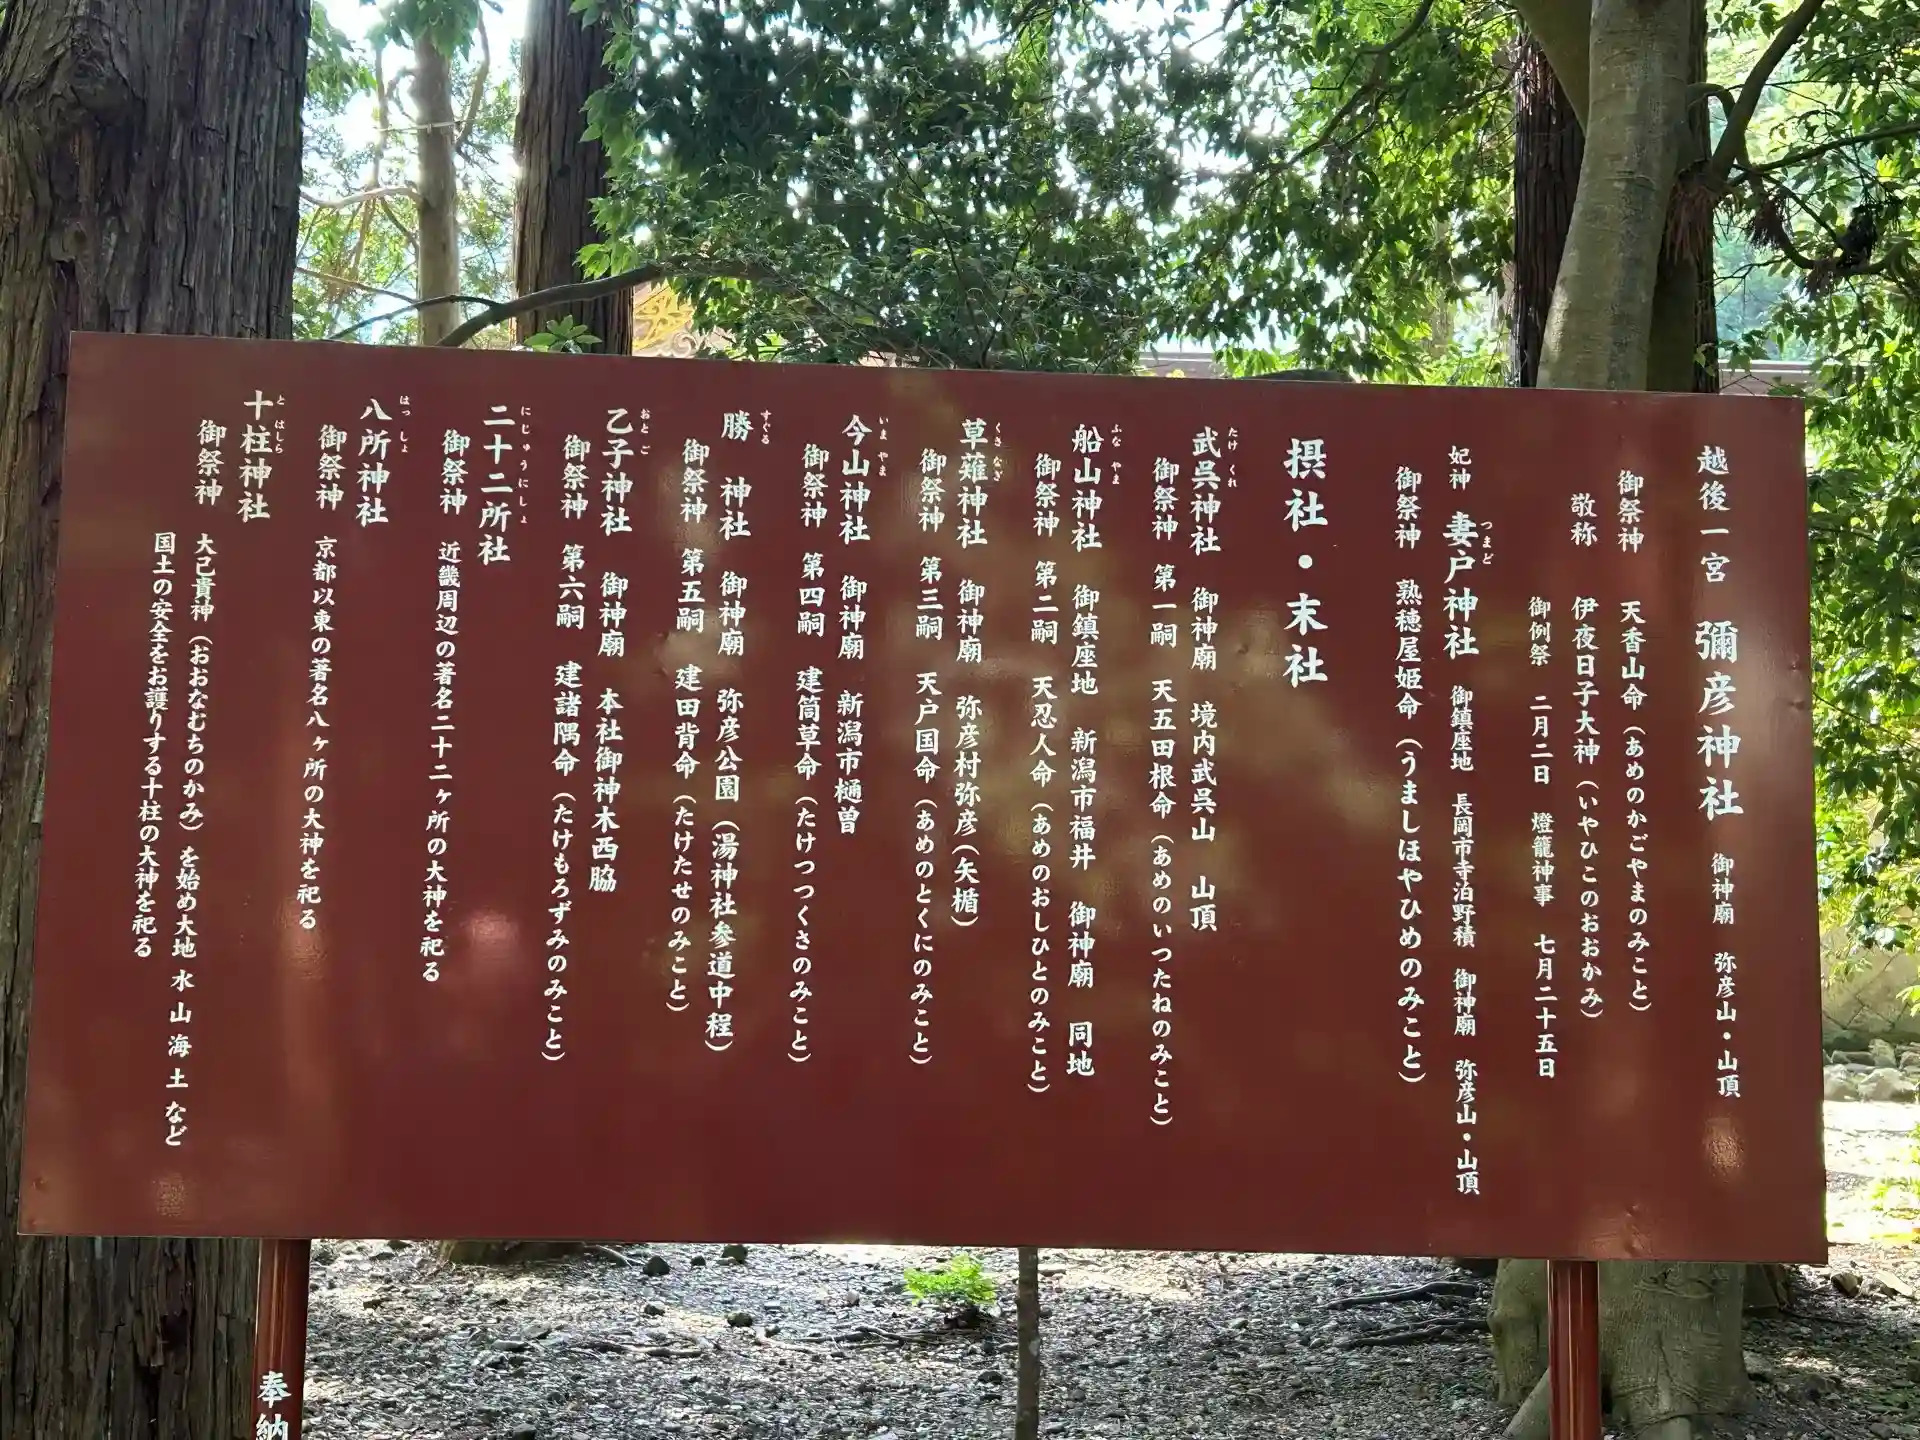 越後一宮 彌彦神社 御神廟 弥彦山・山頂
御祭神 天香山命（あめのかごやまのみこと）
敬称 伊夜日子大神（いやひこのおおかみ）
御例祭 二月二日 燈籠神事 七月二十五日
妃神 妻戸神社 御鎮座地 長岡市寺泊野積 御神廟 弥彦山・山頂
つまど
御祭神 熟穂屋姫命（うましほやひめのみこと）
摂社・末社
武呉神社 御神廟 境内武呉山 山頂
たけくれ
御祭神 第一嗣 天五田根命（あめのいつたねのみこと）
船山神社 御鎮座地 新潟市福井 御神廟 同地
ふなやま
御祭神 第二嗣 天忍人命（あめのおしひとのみこと）
草薙神社 御神廟 弥彦村弥彦（矢楯）
くさなぎ
御祭神 第三嗣 天戸国命（あめのとくにのみこと）
今山神社 御神廟 新潟市樋曽
いまやま
御祭神 第四嗣 建筒草命（たけつつくさのみこと）
勝神社 御神廟 弥彦公園（湯神社参道中程）
すぐる
御祭神 第五嗣 建田背命（たけたせのみこと）
乙子神社 御神廟 本社御神木西脇
おとご
御祭神 第六嗣 建諸隅命（たけもろずみのみこと）
二十二所社
にじゅうにしょ
御祭神 近畿周辺の著名二十二ヶ所の大神を祀る
八所神社
はっしょ
御祭神 京都以東の著名八ヶ所の大神を祀る
十柱神社
とはしら
御祭神 大己貴神（おおなむちのかみ）を始め大地 水 山 海 土 など
国土の安全をお護りする十柱の大神を祀る
奉納